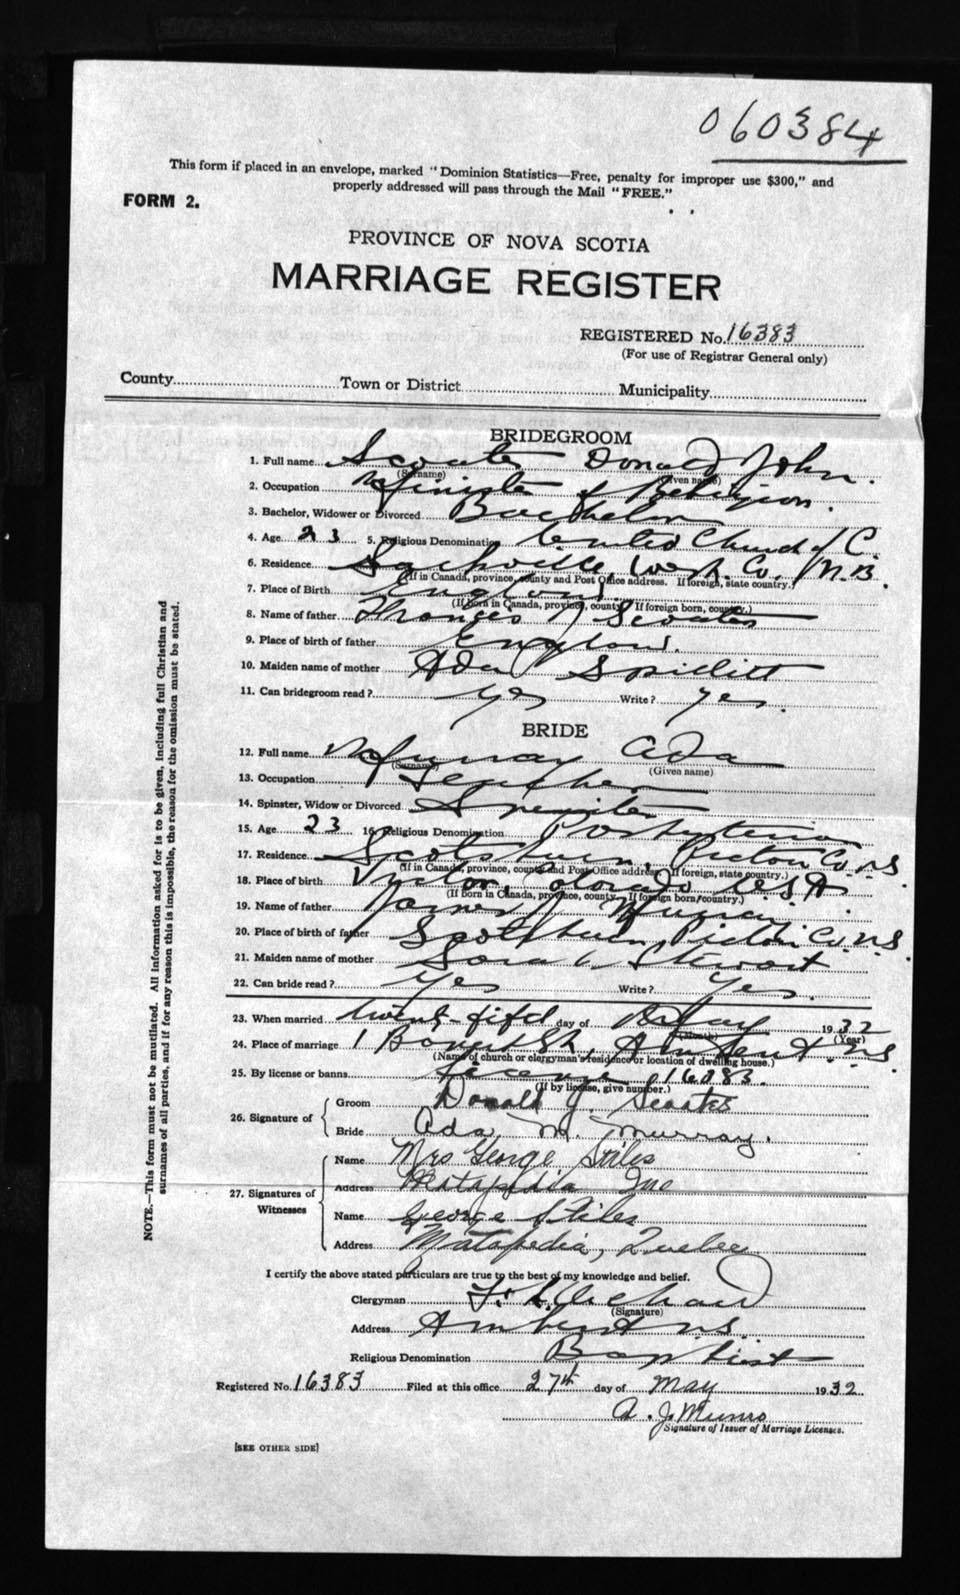 060384
This form if placed in an envelope, marked "Dominion Statistics—Free, penalty for improper use $300," and
properly addressed will pass through the Mail "FREE."
FORM 2.
PROVINCE OF NOVA SCOTIA
MARRIAGE REGISTER
REGISTERED No. 16383
(For use of Registrar General only)
County Town or District Municipality
BRIDEGROOM
1. Full name Scoates Donald John.
(Surname) (Given name)
2. Occupation Minister of Religion.
3. Bachelor, Widower or Divorced Bachelor
4. Age 23 5. Religious Denomination United Church of C.
6. Residence Sackville, West. Co. N.B.
(If in Canada, province, county and Post Office address. If foreign, state country.)
7. Place of Birth England
(If born in Canada, province, county. If foreign born, country.)
8. Name of father Scoates
9. Place of birth of father England.
10. Maiden name of mother Ada Spillitt
11. Can bridegroom read? yes Write? yes.
BRIDE
12. Full name Murray Ada
(Surname) (Given name)
13. Occupation Teacher
14. Spinster, Widow or Divorced Spinster
15. Age 23 16. Religious Denomination Presbyterian
17. Residence Scotsburn, Pictou Co. N.S.
(If in Canada, province, county and Post Office address. If foreign, state country.)
18. Place of birth Victor, Colorado U.S.A
(If born in Canada, province, county. If foreign born, country.)
19. Name of father James Murray
20. Place of birth of father Scotsburn, Pictou Co. N.S.
21. Maiden name of mother Sara Stewart
22. Can bride read? Yes Write? Yes.
23. When married twenty-fifth day of May 1932
(Month) (Year)
24. Place of marriage 1 St., Amherst. N.S.
(Name of church or clergyman's residence or location of dwelling house.)
25. By license or banns. License 16083.
(If by license, give number.)
26. Signature of
Groom Donald J. Scoates
Bride Ada M. Murray.
27. Signatures of
Witnesses
Name Mrs George Stiles
Address Matapedia Que
Name George Stiles
Address Matapedia, Quebec
I certify the above stated particulars are true to the best of my knowledge and belief.
Clergyman
(Signature)
Address Amherst N.S.
Religious Denomination Baptist
Registered No. 16383 Filed at this office 27th day of May 1932
A. J. Munro
Signature of Issuer of Marriage Licenses.
[SEE OTHER SIDE]
NOTE.—This form must not be mutilated. All information asked for is to be given, including full Christian and
surnames of all parties, and if for any reason this is impossible, the reason for the omission must be stated.